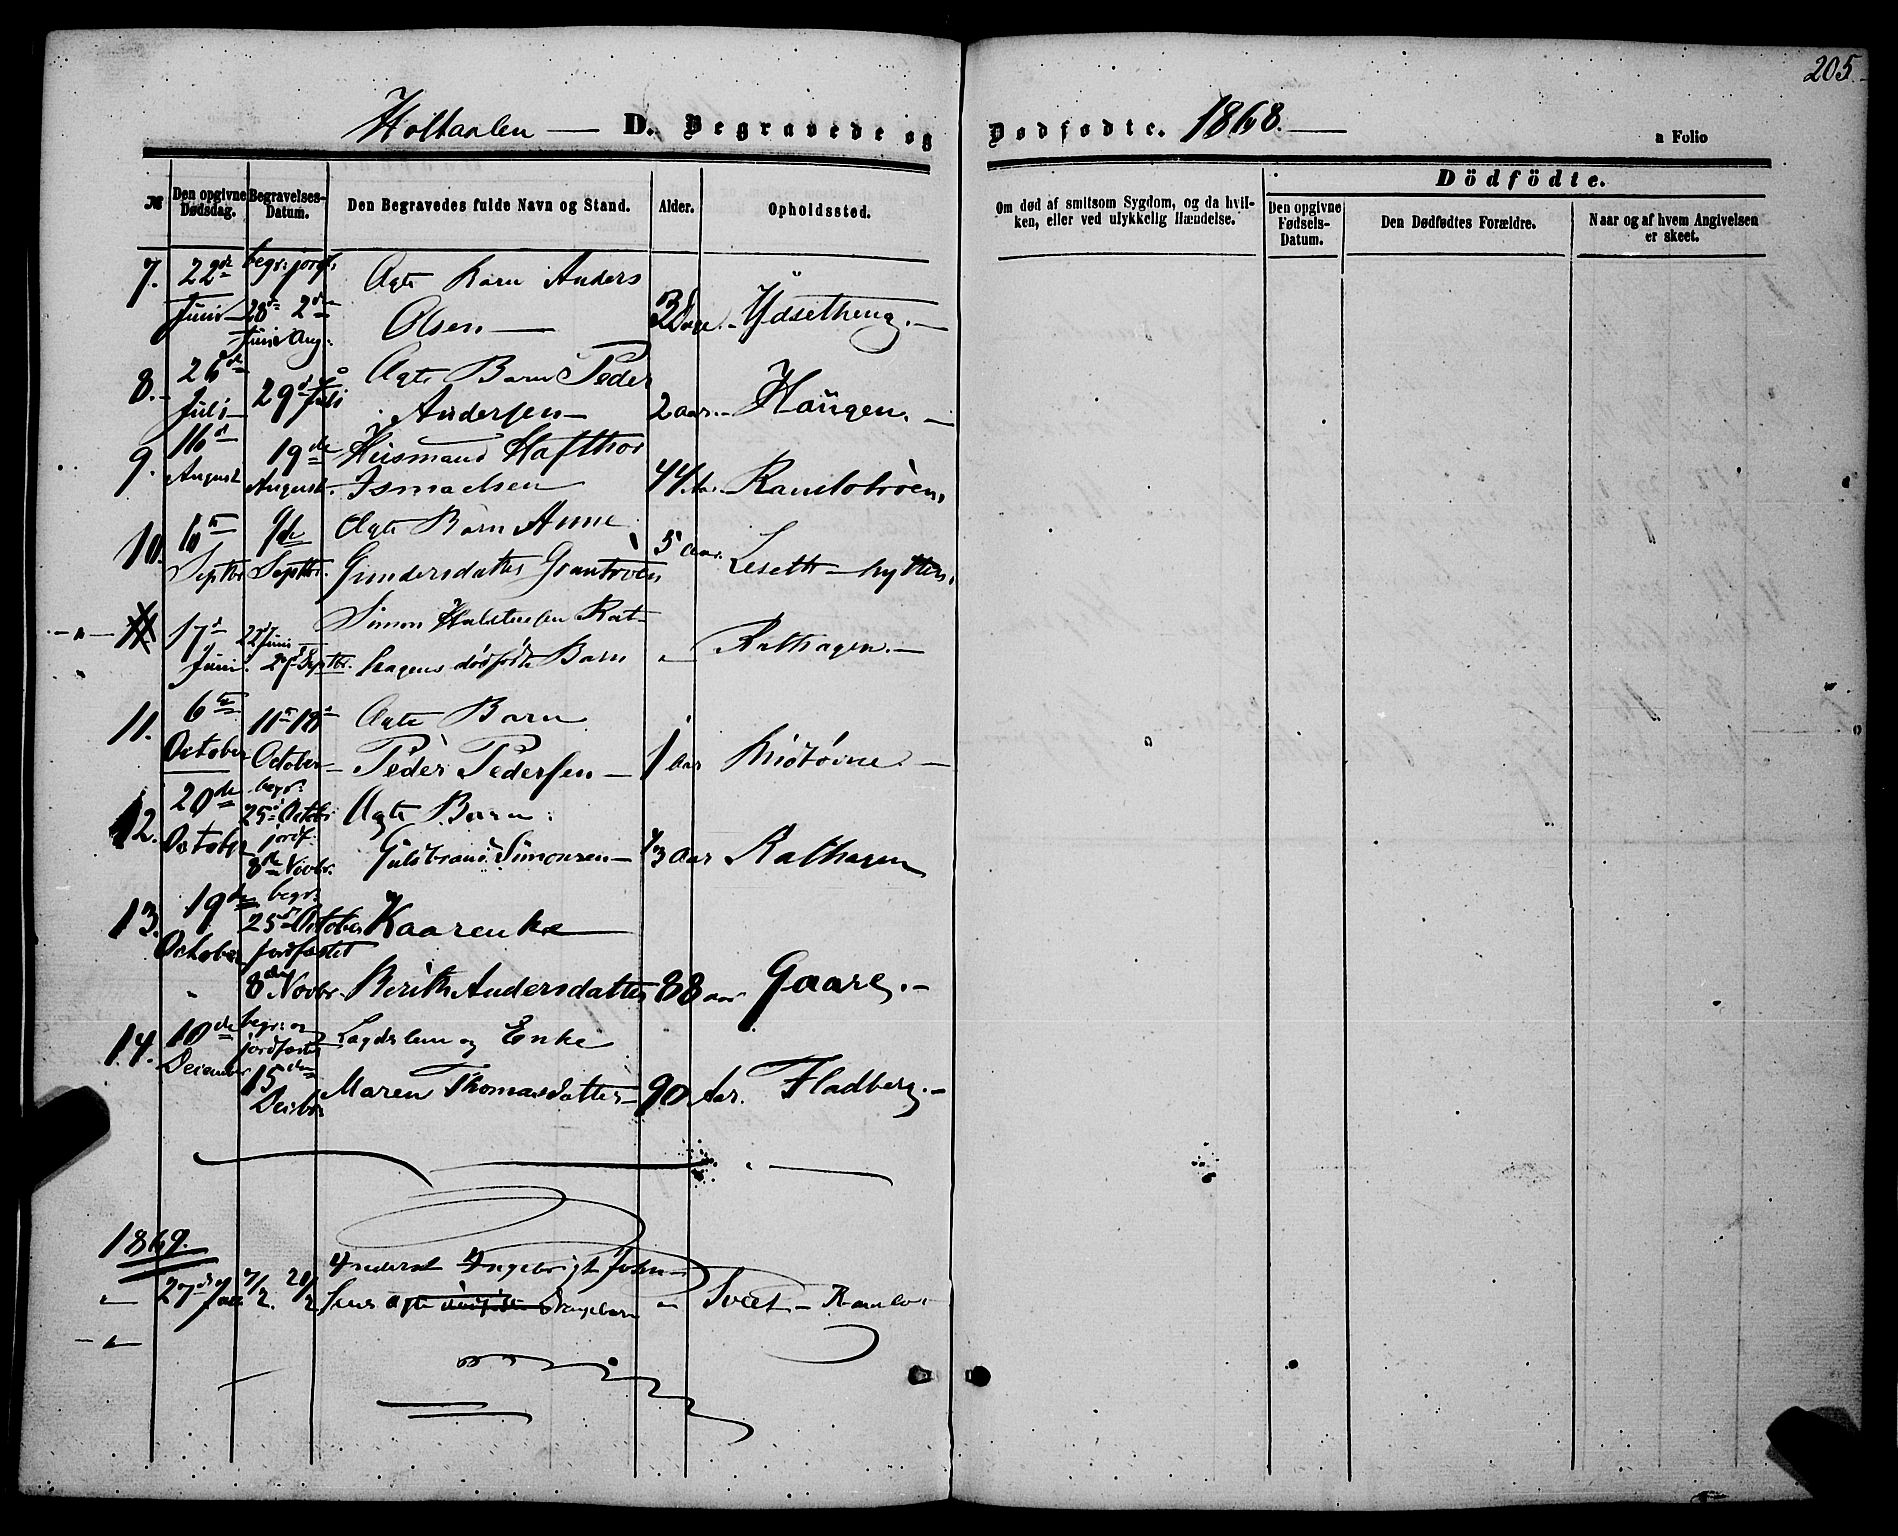 205.
Holtaalen — D. Begravede og Dødfødte. 1868. —
a Folio
№
Den opgivne Dødsdag.
Begravelses-Datum.
Den Begravedes fulde Navn og Stand.
Alder.
Opholdssted.
Om død af smitsom Sygdom, og da hvil-
ken, eller ved ulykkelig Hændelse.
Dödfödte.
Den opgivne Fødsels-Datum.
Den Dødfødtes Forældre.
Naar og af hvem Angivelsen
er skeet.
7. 22de begr: jordf: Ægte Barn Anders
Juni 28de 2den Olsen — Dage. Ydsetheng. —
Juni Aug:
8. 26de 29de Juli Ægte Barn Peder
Juli Andersen — 2 aar. Haugen. —
9. 16de 19de Huusmand Hafthor
August August. Ismaelsen 44 Aar.
10. 6te 9de Ægte Barn Anne 5 Aar.
Septbr Septbr. Gundersdatter Leseth-hytten.
17de 22de Juni Simon Halstensen Rat-
Juni. 27de Septbr. hagens dødfødte Barn " Rathagen. —
11. 6te 11te 18de Ægte Barn
October October — Peder Pedersen — 1 aar
12. 20de begr: 25de Octobr Ægte Barn:
October jordf. 8de Novbr. Guldbrand Simonsen — Aar Rathagen
13. 19de begr: 25de October Kaarenke
October jordfæstet
8de Novbr. Berith Andersdatter 88 aar Gaare. —
14. 10de begr: og Lægdslem og Enke
December jordfæstet
15den Decbr Maren Thomasdatter — 90 Aar. Fladberg. —
1869.
27de Jan 7/2. 20/2 Inderst Ingebrigt John-
sens ægte dødfødte Drengebarn "